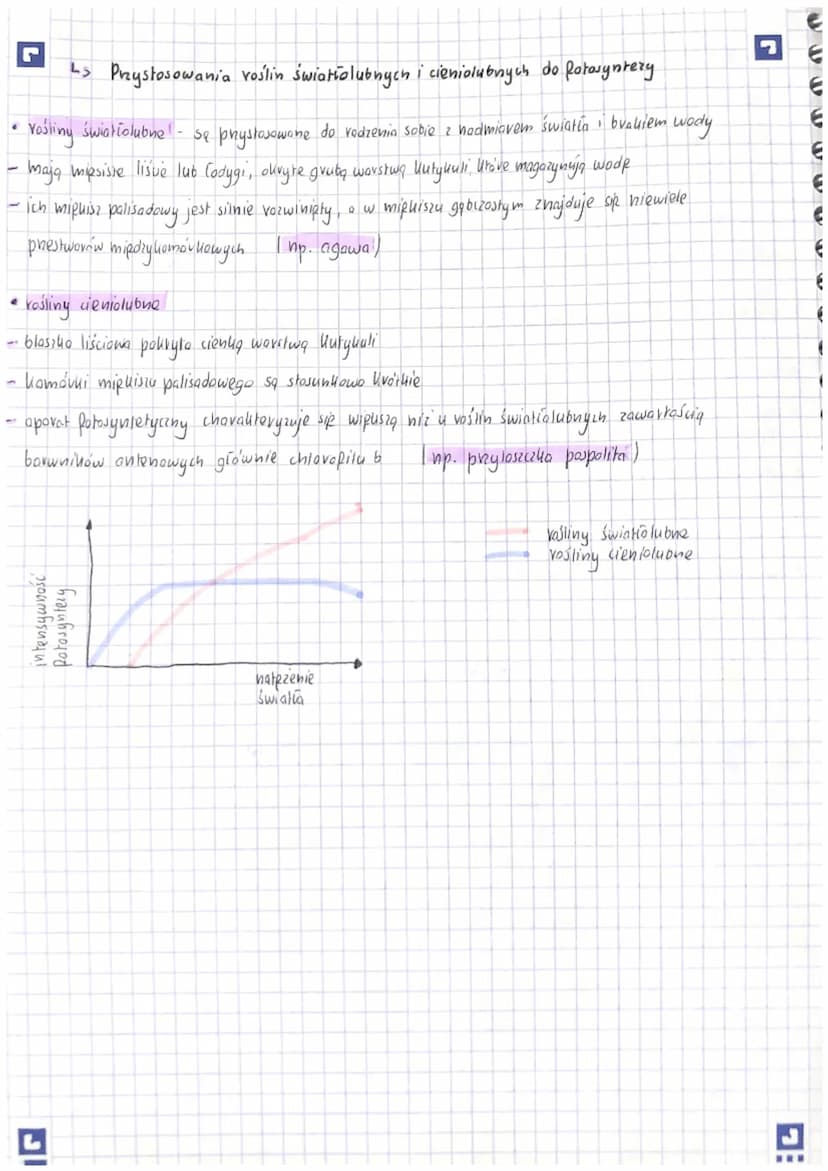 ↳ Przystosowania roślin światłolubnych i cieniolubnych do fotosyntezy
• rośliny światłolubne - są przystosowane do radzenia sobie z nadmiarem światła i brakiem wody
- mają mięsiste liście lub łodygi, okryte grubą warstwą kutykuli, które magazynują wodę
- ich miękisz palisadowy jest silnie rozwinięty, a w miękiszu gąbczastym znajduje się niewiele
przestworów międzykomórkowych (np. agawa)
• rośliny cieniolubne
- blaszka liściowa pokryta cienką warstwą kutykuli
- komórki miękiszu palisadowego są stosunkowo krótkie
- aparat fotosyntetyczny charakteryzuje się większą niż u roślin światłolubnych zawartością
barwników antenowych głównie chlorofilu b (np. przylaszczka pospolita)
rośliny światłolubne
rośliny cieniolubne
intensywność
fotosyntezy
natężenie
światła